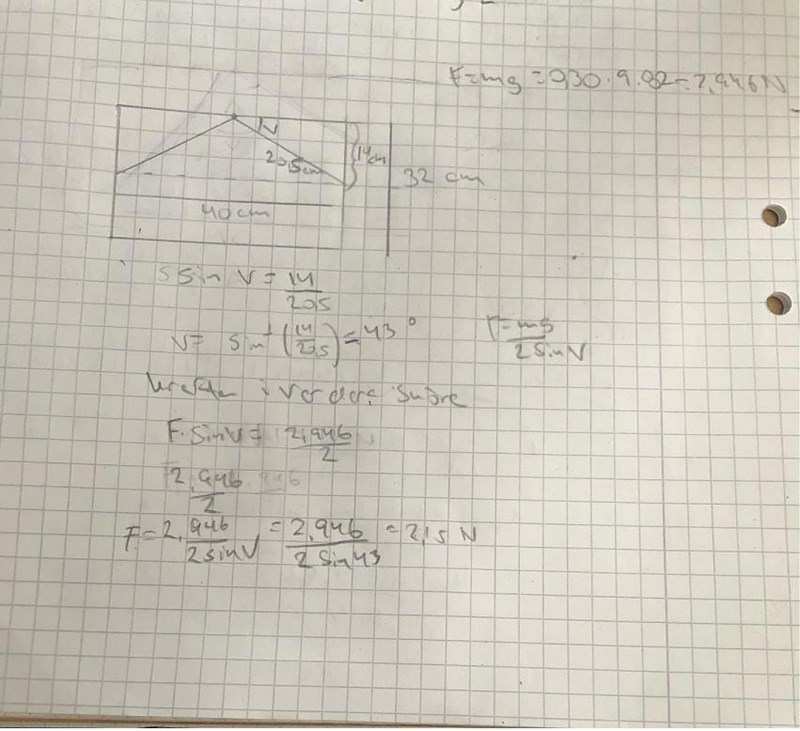 F=mg = 0,30 · 9.82 = 2,946 N
V
20,5cm
14cm
32 cm
40cm
sin V = 14/20,5
V= sin⁻¹ (14/20,5) = 43°
F=mg/2 sin V
kraften i vardera snöre
F· sin V = 2,946/2
2,946/2
F= 2,946/2 sin V = 2,946/2 sin 43 = 2,15 N